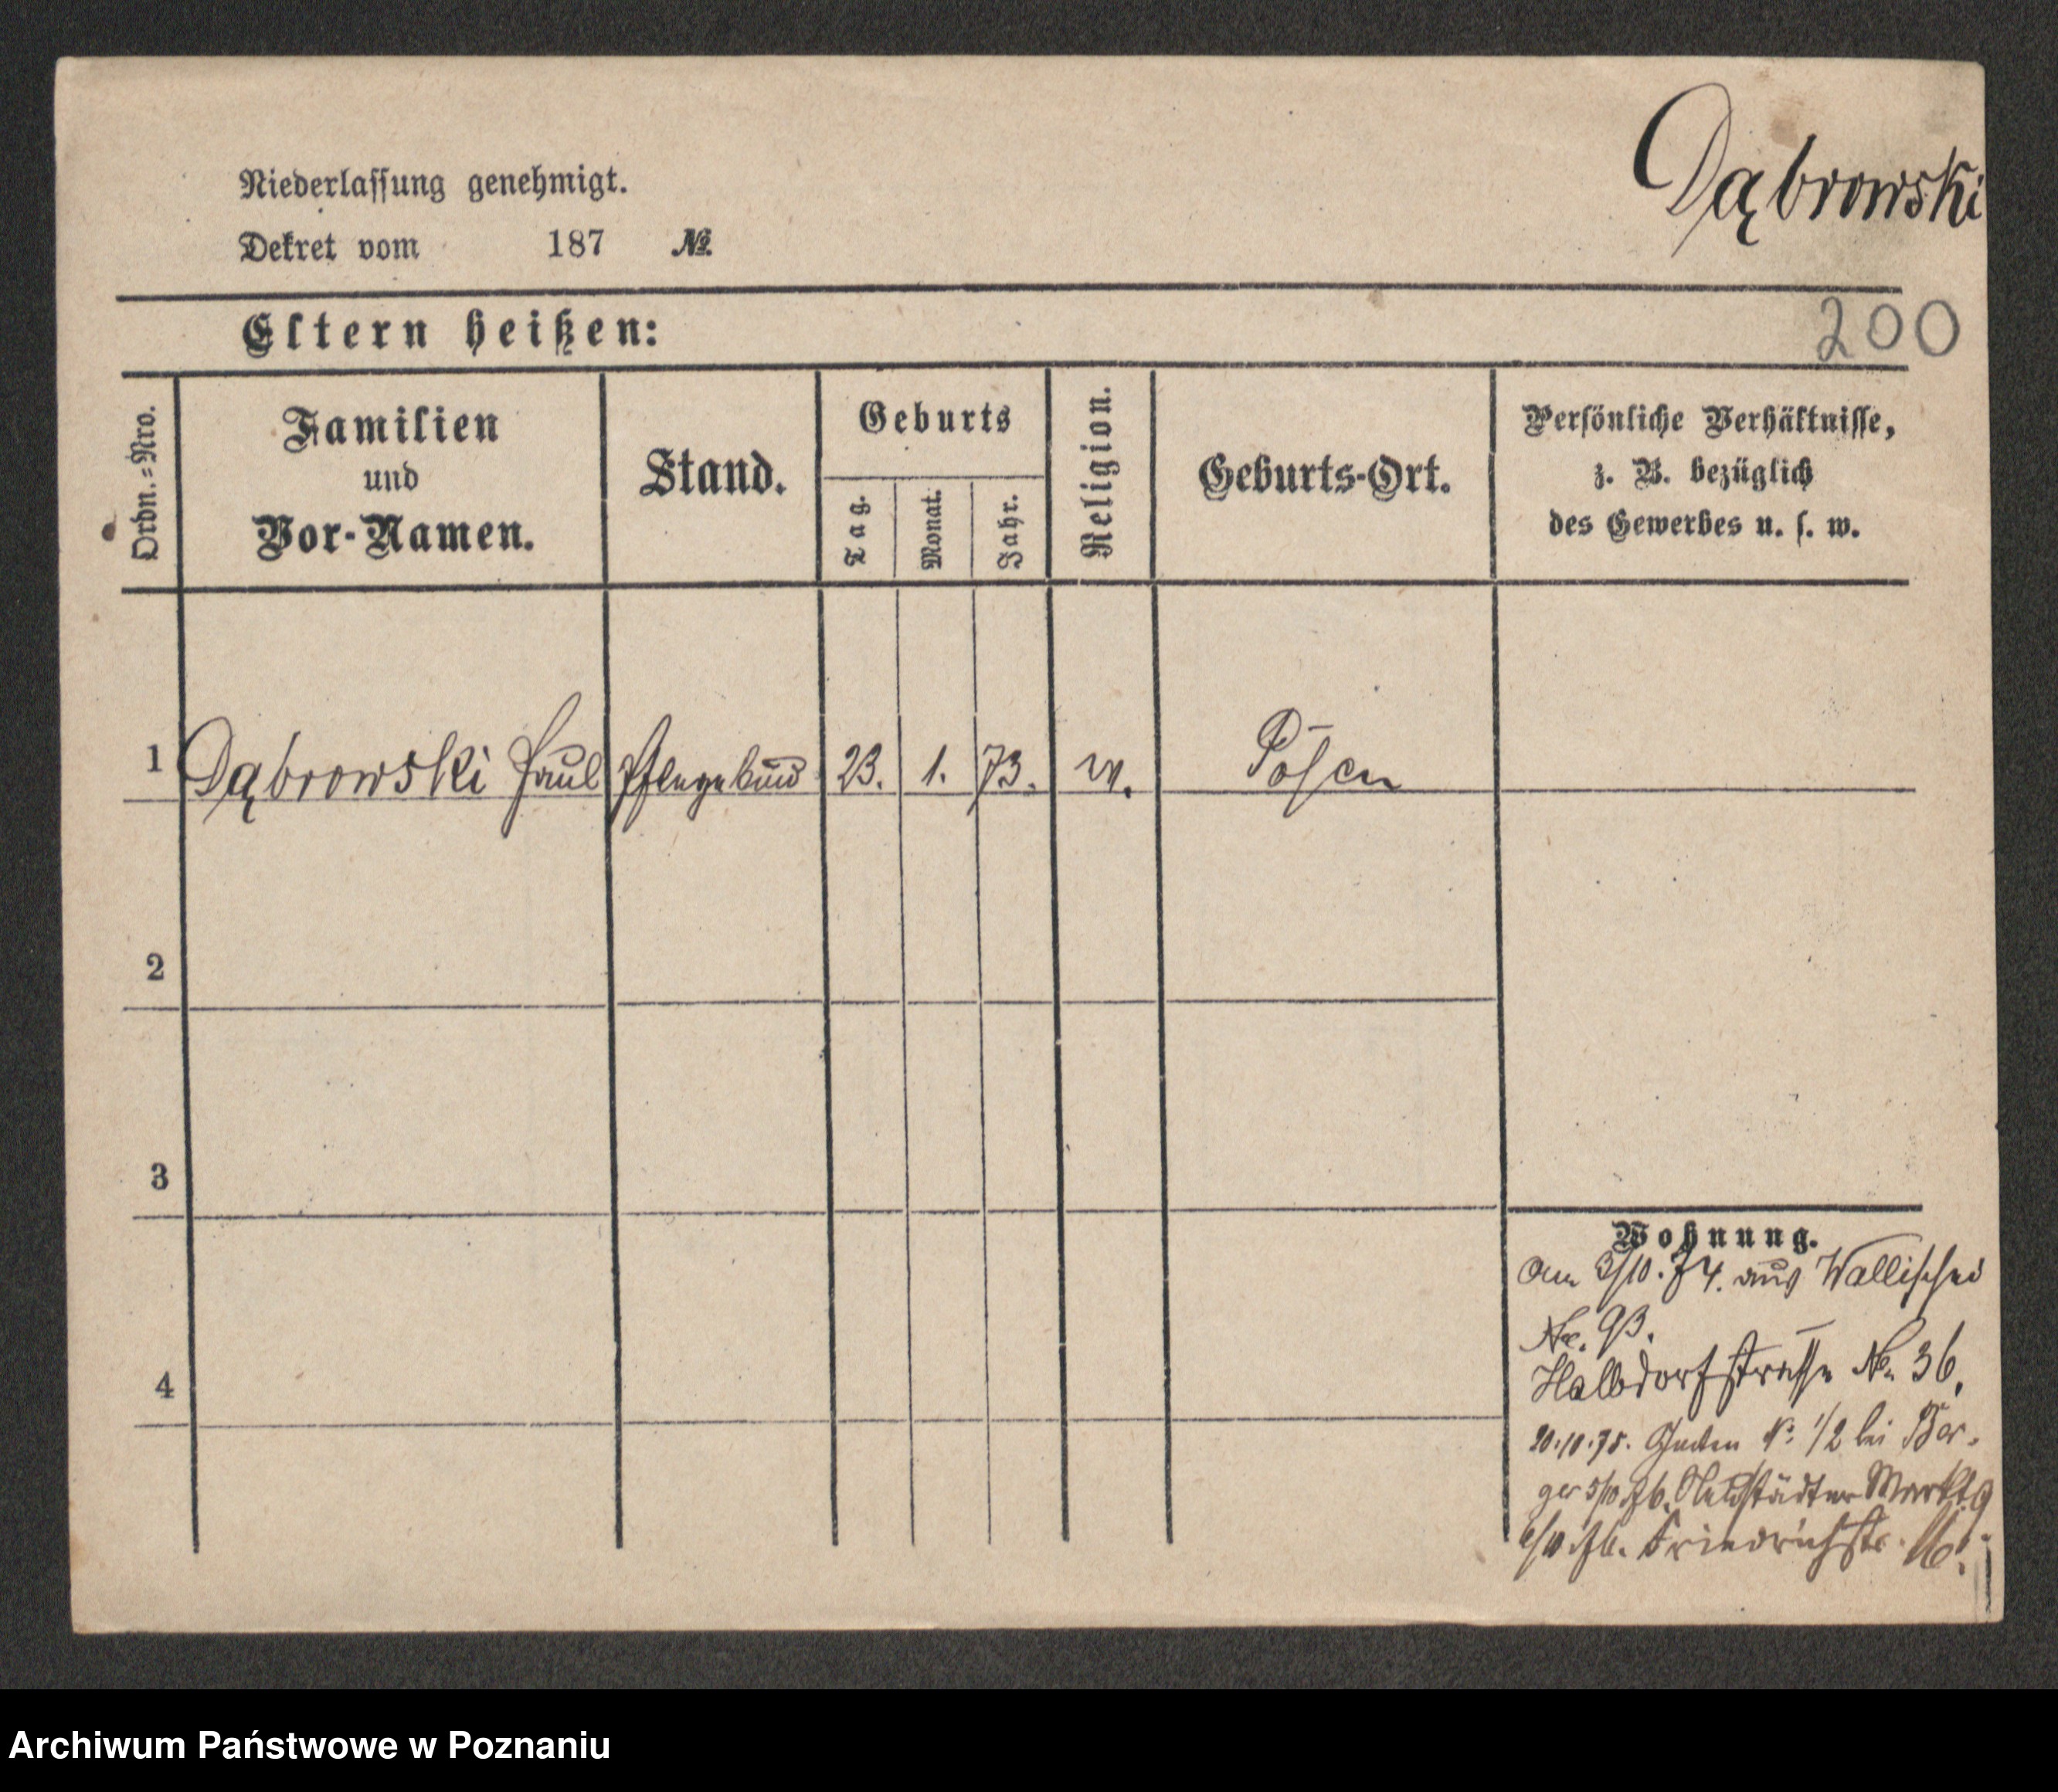 Dąbrowski
Niederlassung genehmigt.
Dekret vom 187 №
200
Eltern heißen:
Ordn.=Nro.
Familien
und
Vor-Namen.
Stand.
Geburts
Tag.
Monat.
Jahr.
Religion.
Geburts-Ort.
Persönliche Verhältnisse,
z. B. bezüglich
des Gewerbes u. s. w.
1 Dąbrowski Paul Pflegekind 23. 1. 73. Posen
2
3
4
Wohnung.
Am 3/10. 74. aus Wallischei
No. 93.
Halbdorfstrasse No. 36,
20.10.75. 1/2 bei Ber-
ger 5/10 76. Neustädter Markt 9
6/10 76. Friedrichstr. 16.
Archiwum Państwowe w Poznaniu